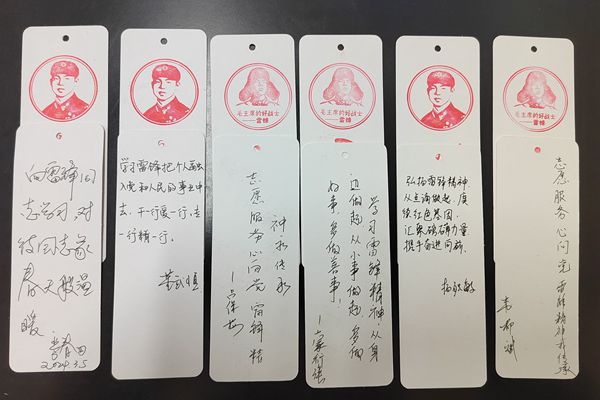 毛主席的好战士
——雷锋
毛主席的好战士
——雷锋
毛主席的好战士
——雷锋
向雷锋同
志学习,对
待同志象
春天般温
暖
2024.3.5
学习雷锋把个人融
入党和人民的事业中
去,干一行爱一行,专
一行精一行。
志愿服务心向党 雷锋精
神永传承
学习雷锋精神,从身
边做起从小事做起,多做
好事,多做善事!
弘扬雷锋精神
从点滴做起,赓
续红色基因,
汇聚磅礴力量
携手奋进同新
志愿服务心向党 雷锋精神我传承